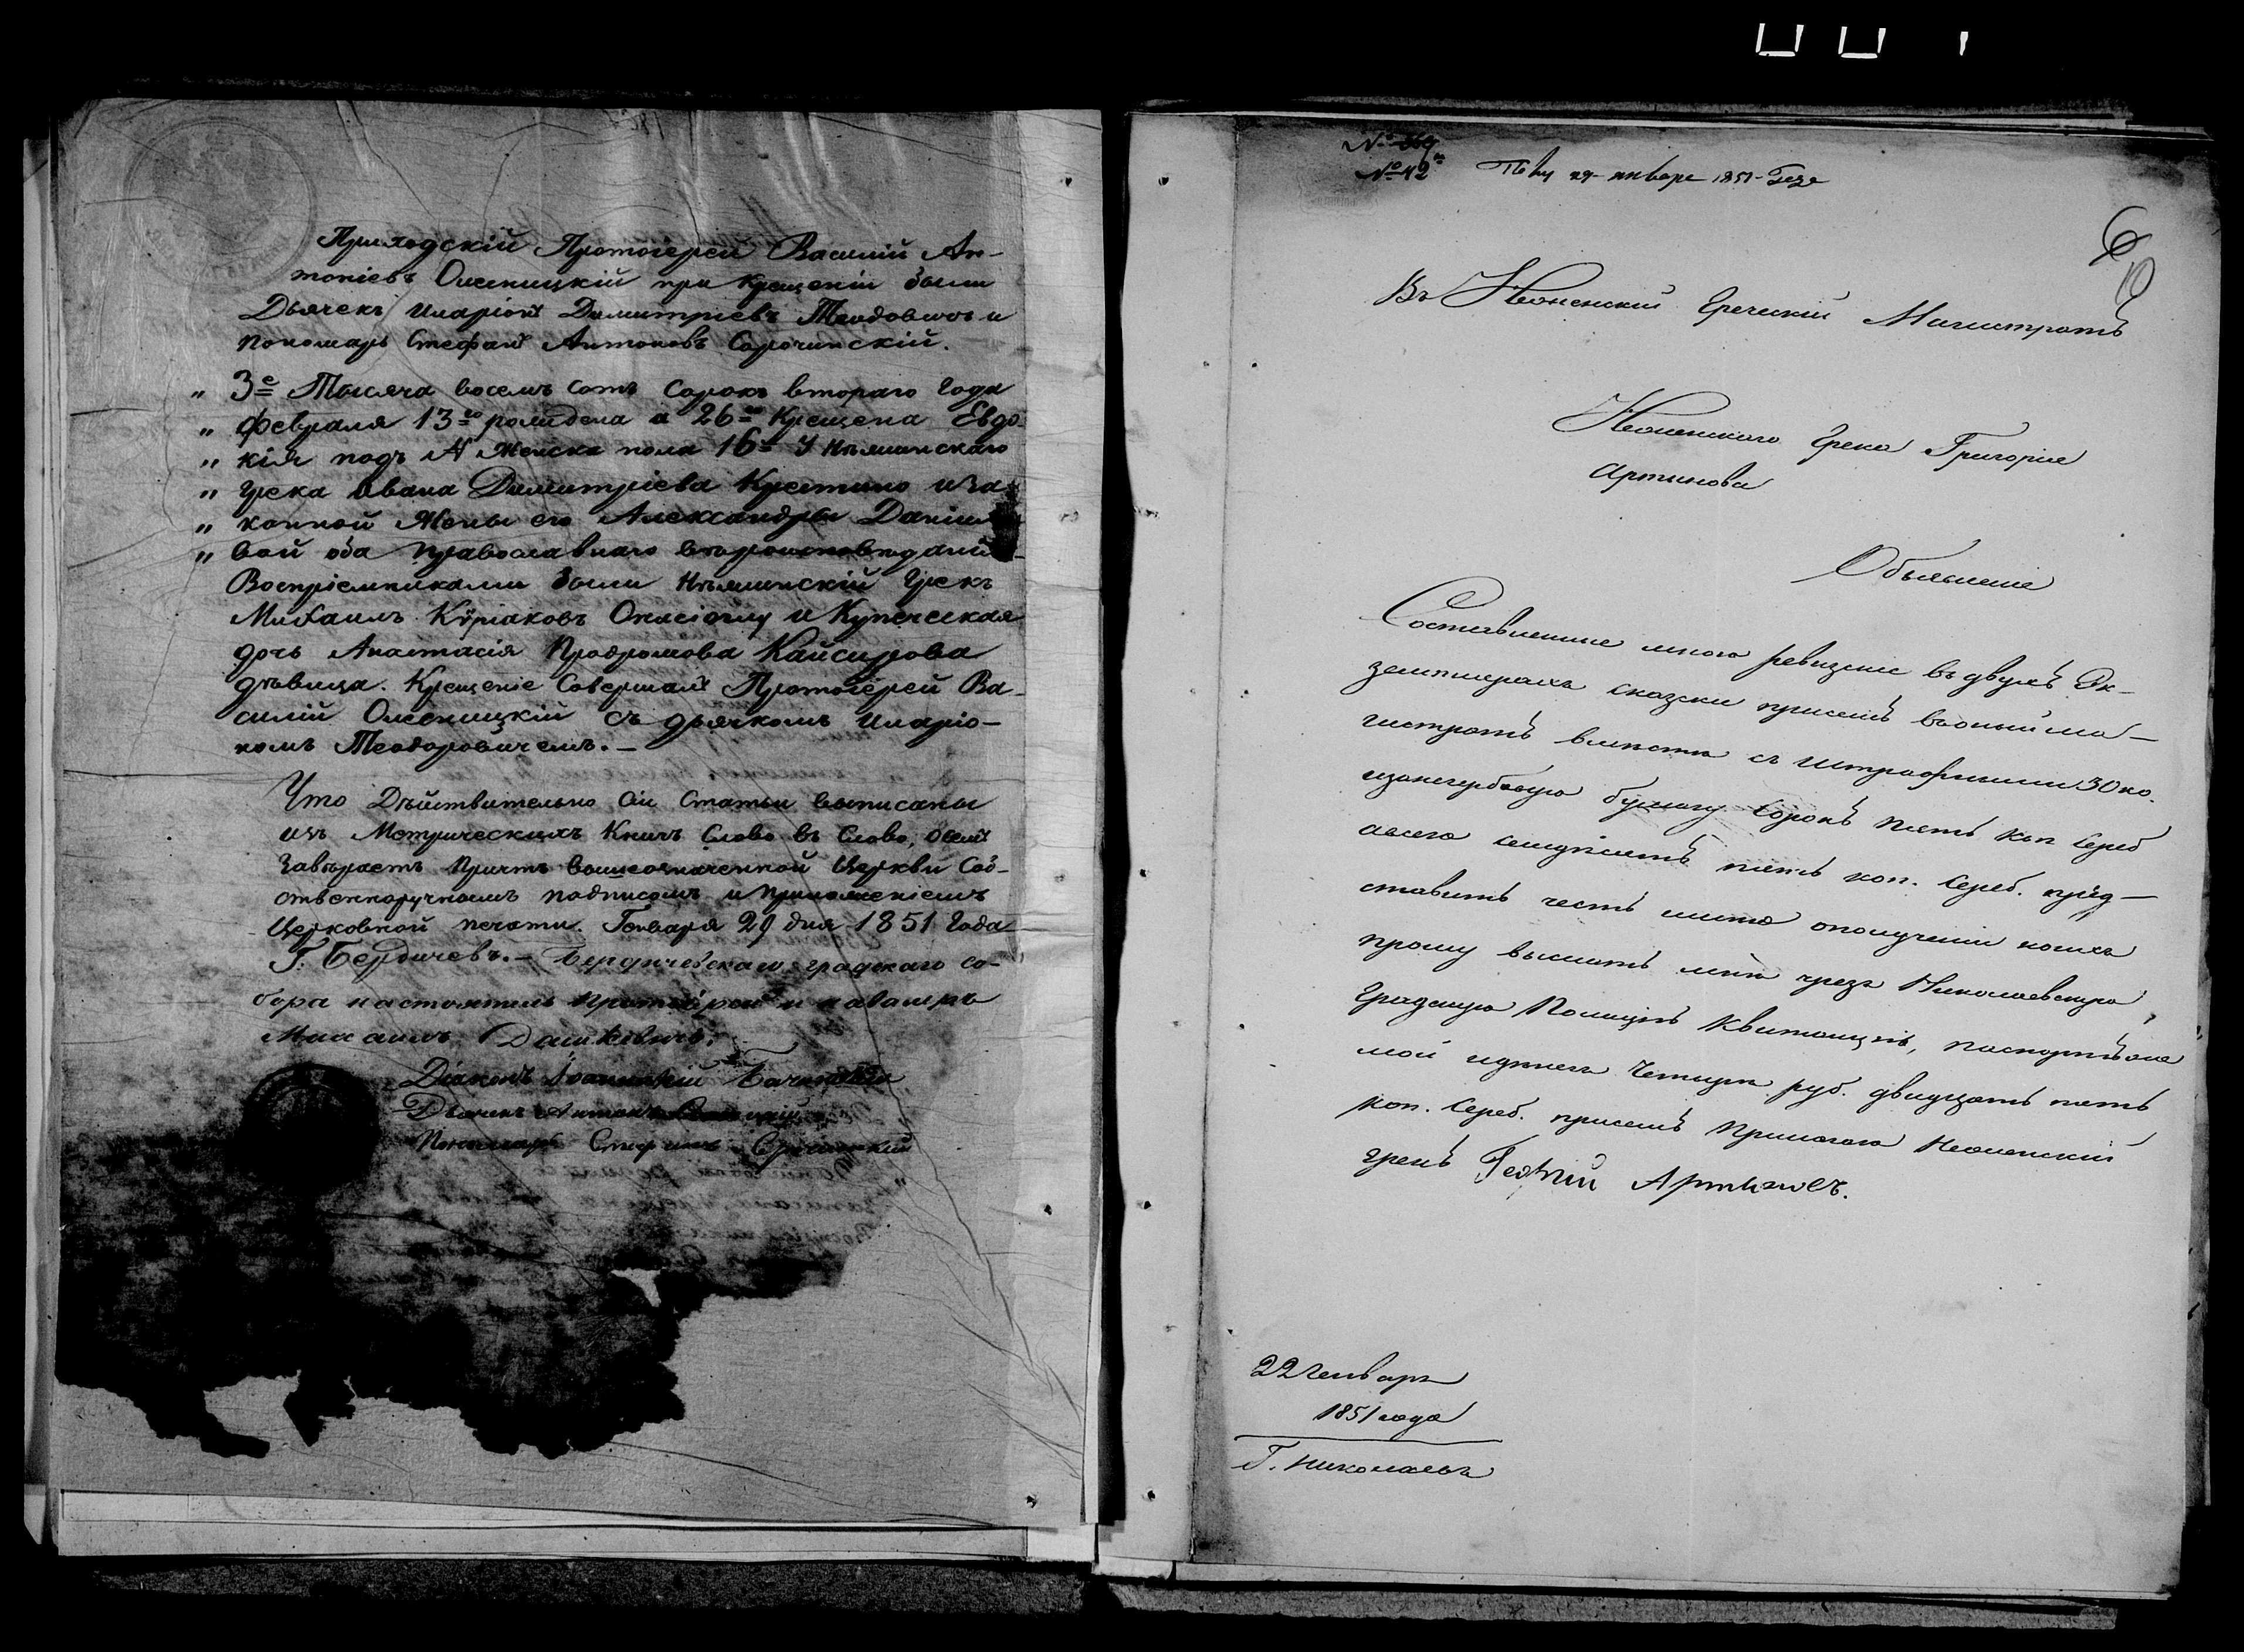 Приходскій Протоіерей Василій Ан-
тоніевъ Олесницкій при крещеніи были
Дьячекъ Иларіонъ Димитріевъ Теодовичъ и
Пономарь Стефанъ Антоновъ Сорочинскій.
" 3е Тысяча восемъ сотъ сорокъ втораго года
" февраля 13го рождена а 26го крещена Евдо-
" кія подъ № Женска пола 16м У Нѣжинскаго
" Грека Ивана Димитріева Крестино и за-
" конной Жены его Александры Даніил
" вой оба православнаго вѣроисповѣданія
Воспріемниками были Нѣжинскій Грекъ
Михаилъ Кѵріаковъ и Купеческая
дочь Анастасія Продромова Кайсирова
дѣвица. Крещеніе Совершалъ Протоіерей Ва-
силій Олесницкій съ дьячкомъ Иларіо-
номъ Теодоровичемъ.—
Что Дѣйствительно сіи Статьи выписаны
изъ Метрическихъ Книгъ Слово въ Слово, всемъ
Завѣряетъ Причтъ вышеозначенной Церкви Соб-
ственноручнымъ подписомъ и приложеніемъ
Церковной печати. Генваря 29 дня 1851 Года
Г. Бердичевъ.— Бердичевскаго градскаго со-
бора настоятель протоіерей и кавалеръ
Михаилъ Дашкевичъ.
Діаконъ Іоанникій
Дьячекъ Антонъ
Пономарь Стефанъ Сорочинскій
№ 42
29 января 1851 года
6
10
Въ Нѣжинскій Греческій Магистратъ
Нѣжинскаго Грека Григорія
Артинова
Объявленіе
Составленные мною ревизскіе въ двухъ Эк-
земплярахъ сказски присемъ въ оный ма-
гистратъ вместѣ съ штрафными 30 ко.
изанегербовую бумагу сорокъ пять коп сереб
авсего семдесятъ пять коп. сереб. пред-
ставить честь имѣю ополученіи коихъ
прошу выслать мнѣ чрезъ Николаевскую
Градскую Полицію Квитанцію, паспортъ
мой и денегъ Четыре руб. двадцать пять
коп. сереб. присемъ Прилогаю Нѣжинскій
грекъ Артиновъ.
22 генваря
1851 года
Г. Николаевъ